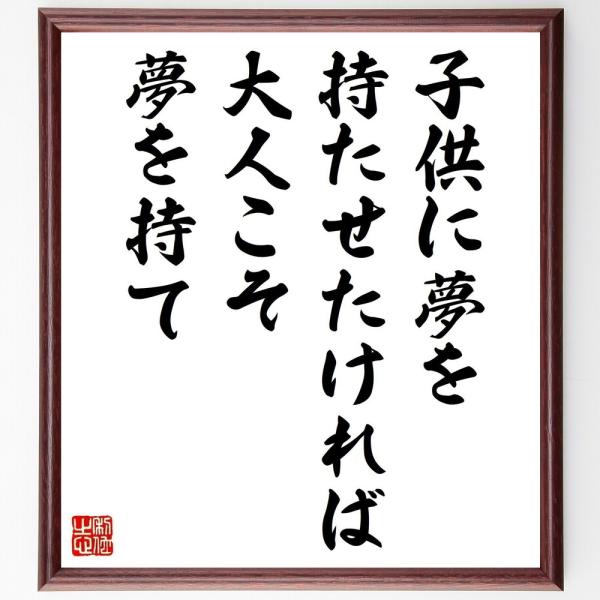 子供に夢を
持たせたければ
大人こそ
夢を持て